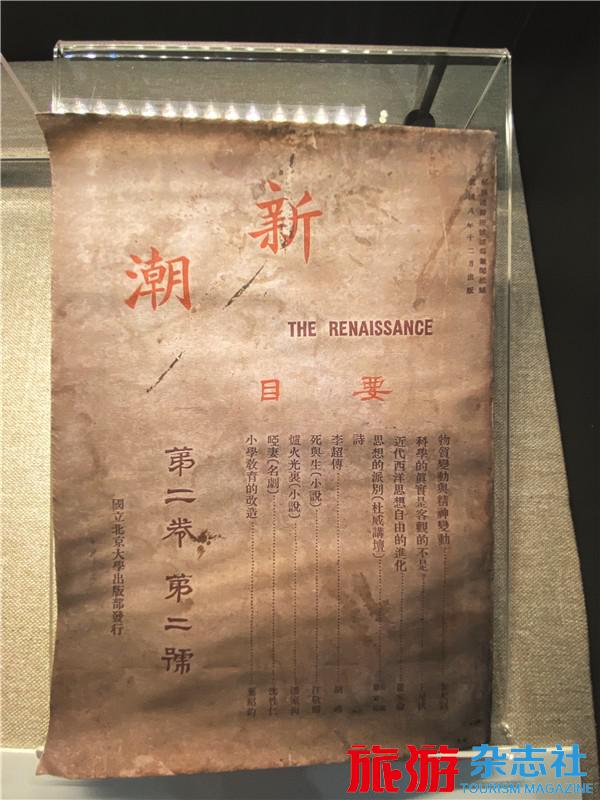 八年十二月出版
新潮
THE RENAISSANCE
要目
物質變動與精神變動
科學的眞實是客觀的不是？
近代西洋思想自由的進化 羅家倫
思想的派別(杜威講壇)
詩
李超傳 胡適
死與生(小說) 汪敬熙
爐火光裏(小說) 潘家洵
啞妻(名劇) 沈性仁
小學教育的改造 葉紹鈞
第二卷 第二號
國立北京大學出版部發行
旅游杂志社
TOURISM MAGAZINE